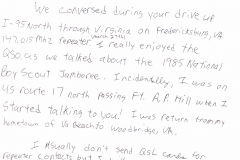 We conversed during your drive up
I-95 North through Virginia on Fredericksburg, VA
147.015 MHz repeater. I really enjoyed the
QSO, as we talked about the 1985 National
Boy Scout Jamboree. Incidentally, I was on
US route 17 north passing Ft. A.P. Hill when I
started talking to you! I was return from my
hometown of Va Beach to Woodbridge, VA.
I usually don't send QSL cards for
repeater contacts but I